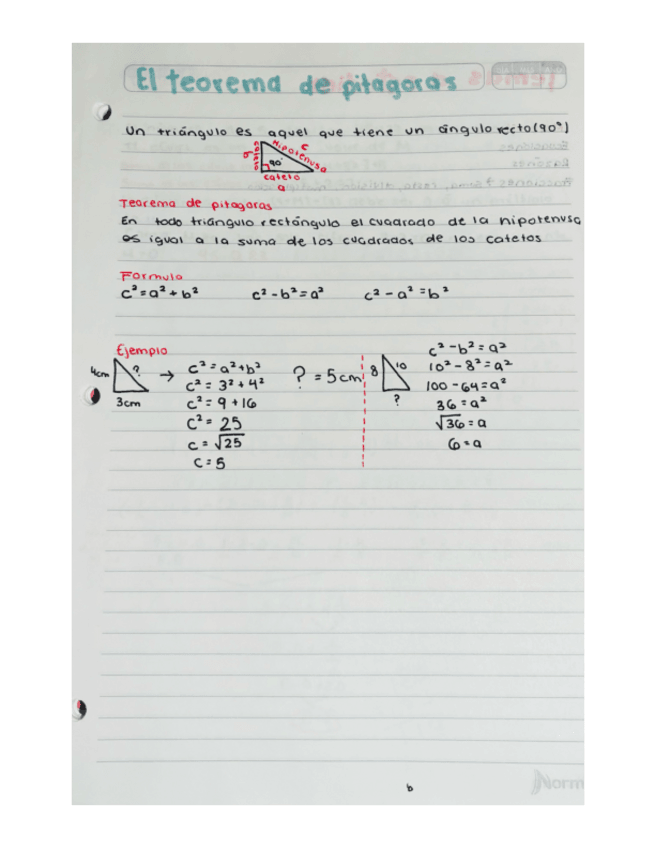 El teorema de pitagoras
Un triángulo es aquel que tiene un ángulo recto (90°)
cateto
b
Hipotenusa
c
90°
cateto
a
Teorema de pitagoras
En todo triángulo rectángulo el cuadrado de la hipotenusa
es igual a la suma de los cuadrados de los catetos
Formula
c² = a² + b² c² - b² = a² c² - a² = b²
Ejemplo
4cm
?
3cm
→
c² = a² + b²
c² = 3² + 4²
c² = 9 + 16
c² = 25
c = √25
c = 5
? = 5cm
8
10
?
c² - b² = a²
10² - 8² = a²
100 - 64 = a²
36 = a²
√36 = a
6 = a
b
Norm